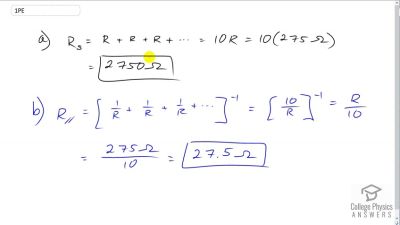 1PE
a) R_s = R + R + R + ... = 10R = 10(275Ω)
= 2750Ω
b) R_// = [1/R + 1/R + 1/R + ...]^-1 = [10/R]^-1 = R/10
= 275Ω/10 = 27.5Ω
College Physics
ANSWERS